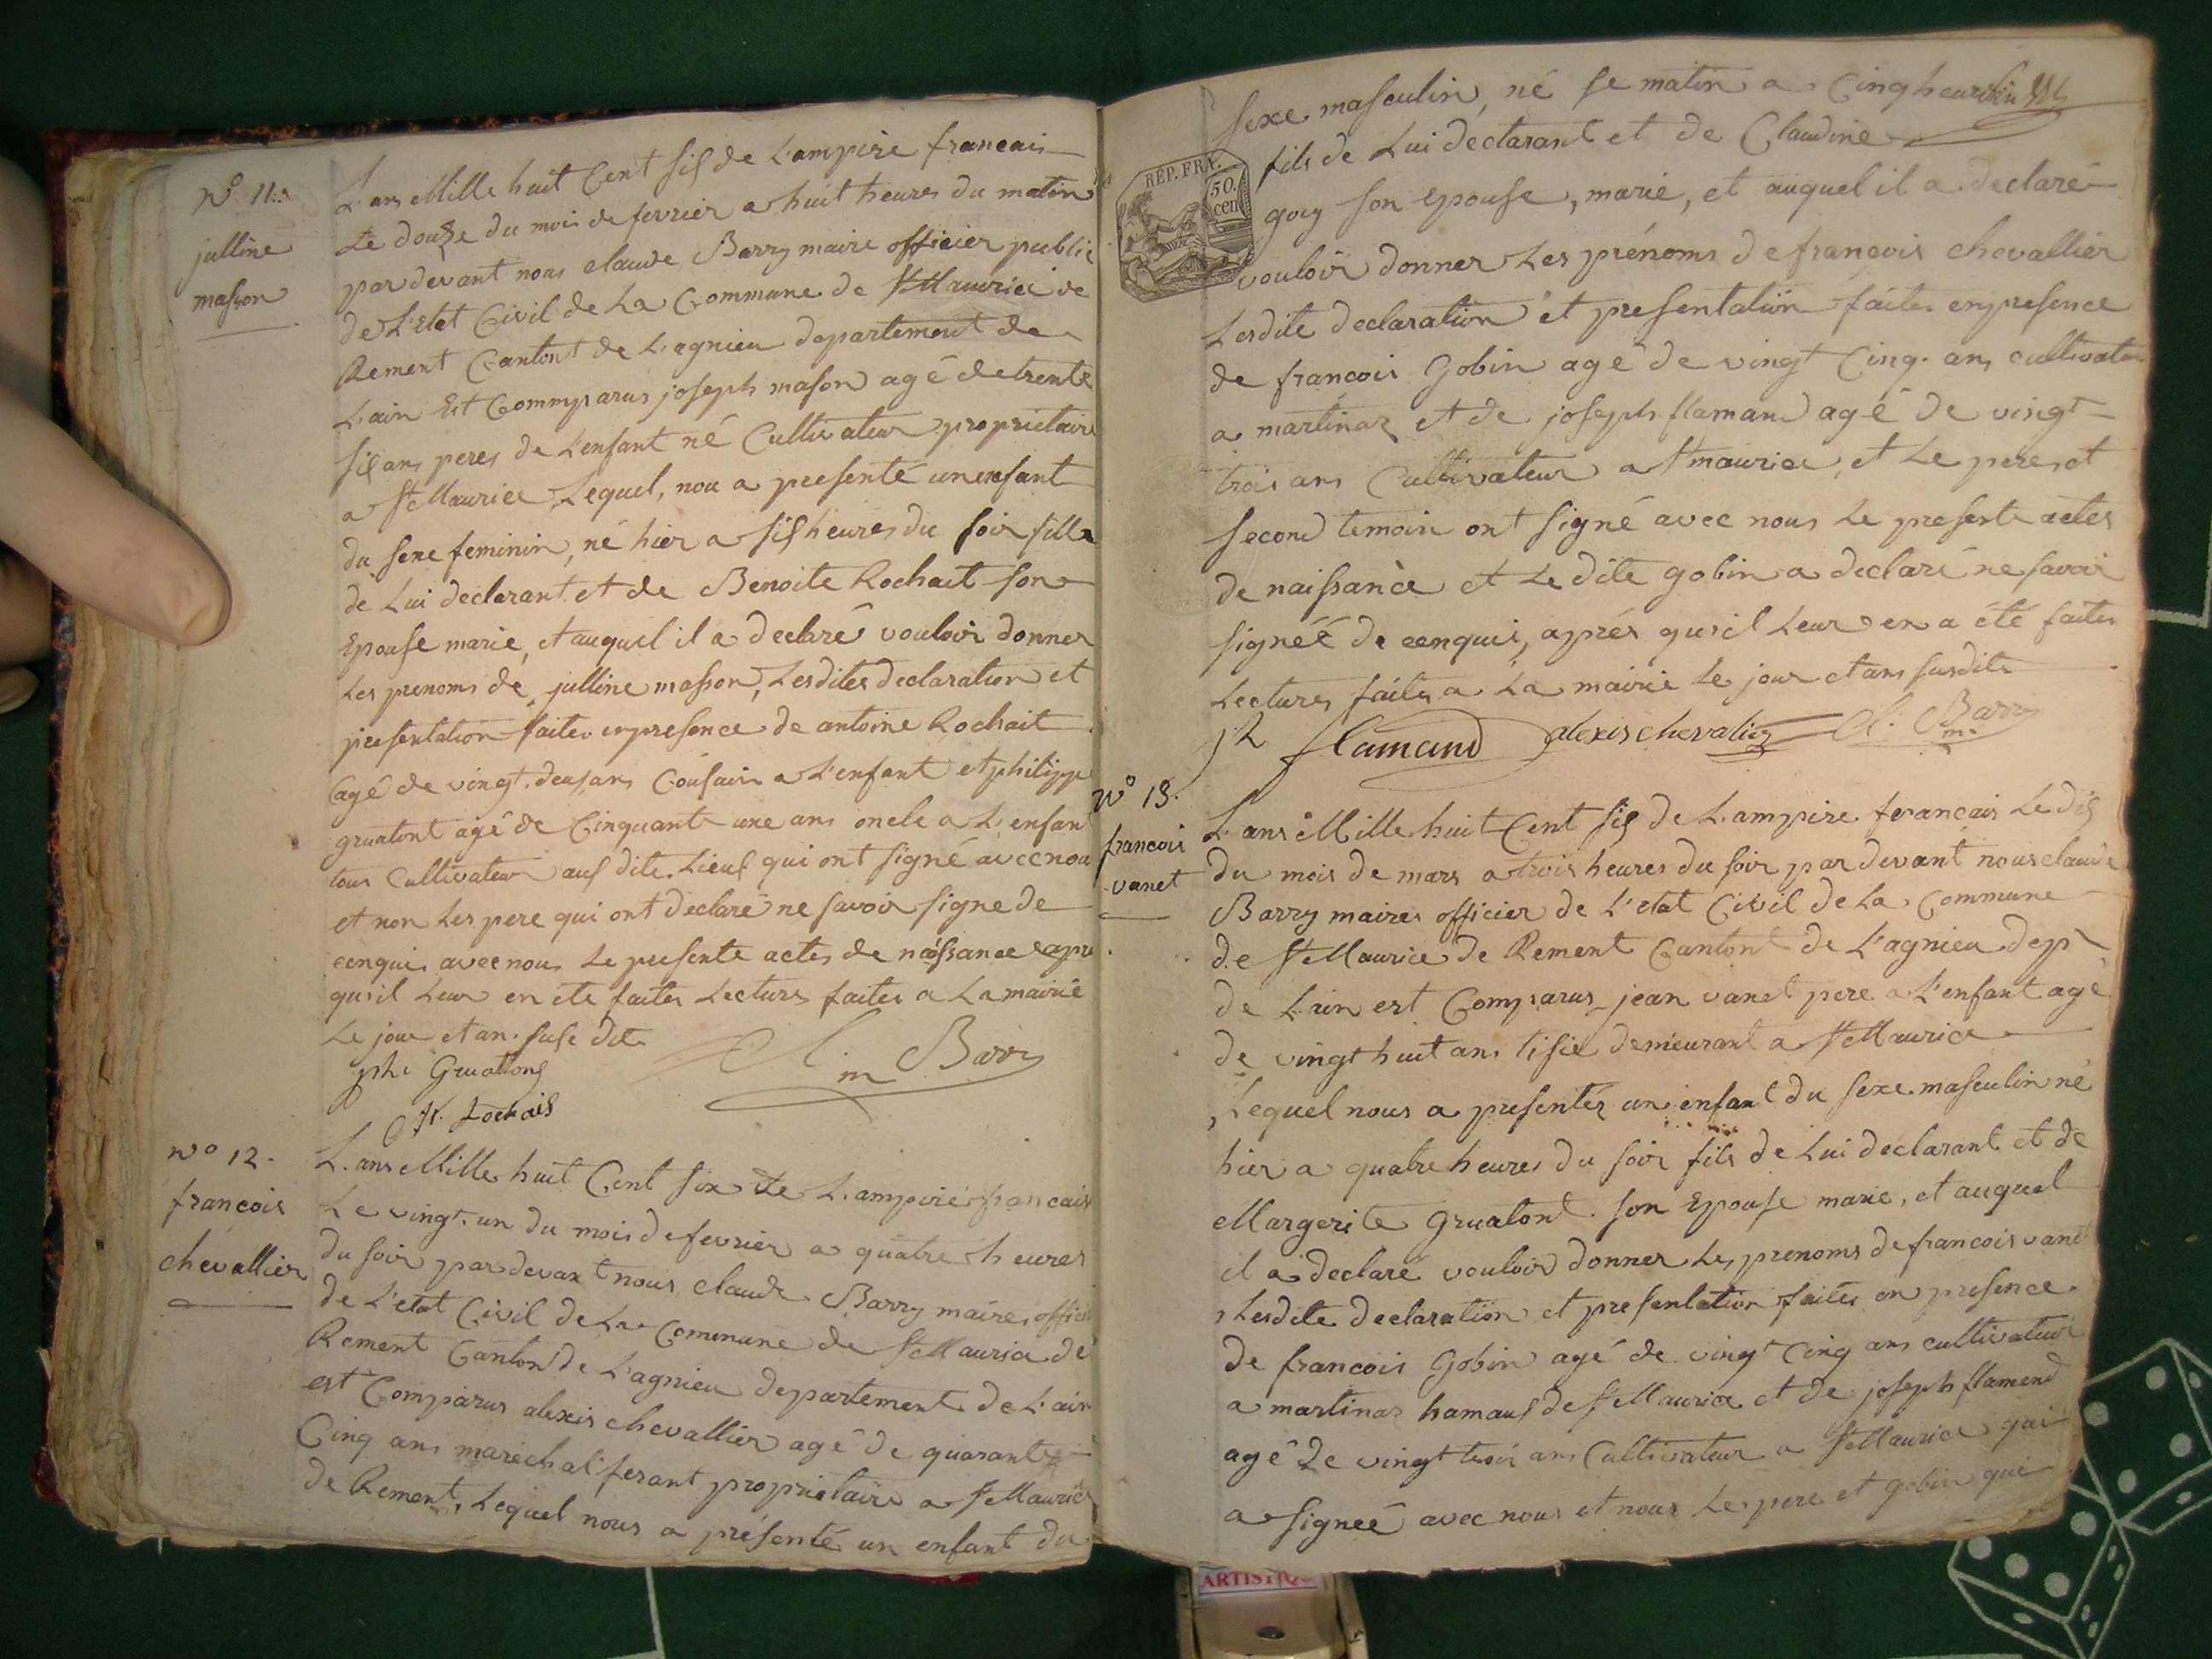 N° 11
julline
masson
L'ans Mille huit Cent sis de L'ampire francais
Le douze du mois de fevrier a huit heures du matin
par devant nous claude Barry maire officier public
de L'Etat Civil de La Commune de St Maurice de
Rement Cantont de L'agnieu departement de
L'ain Est Commparus joseph mason agé de trente
sis ans peres de L'enfant né Cultivateur propriétaire
a St Maurice Lequel, nou a presenté un enfant
du sexe feminin, né hier a sis heures du soir fille
de Lui declarant et de Benoite Rochait son
Epouse marie, et auquel il a declaré vouloir donner
Les prenoms de julline masson, Lesdites declaration et
presentation faites enpresence de antoine Rochait
agé de vingt deux ans Cousain a L'enfant et philippe
gruatont agé de Cinquante une ans oncle a L'enfant
tous Cultivateur aus dite Lieus qui ont signé avec nou
et non Les pere qui ont declaré ne savoir signe de
cenquis avec nous Le presente actes de naissance apre
qu'il Leur en ete faites Lecture faites a La mairie
Le jour et an suse dit
phi Gruattong
At. Rochais
Cl. Barry
m
N° 12.
françois
chevallier
L'ans Mille huit Cent six de L'ampire francais
Le vingt un du mois de fevrier a quatre heures
du soir par devant nous claude Barry maires offici
de L'etat Civil de La Commune de St Maurice de
Rement Canton de L'agnieu departement de L'ain
est Comparus alexis chevallier agé de quarante
Cinq ans marechal ferant propriétaire a St Maurice
de Rement, Lequel nous a présenté un enfant du
REP. FRA.
50.
cen
sexe masculin, né se matin a Cinq heur
fils de Lui declarant et de Claudine
goy son epouse, marie, et auquel il a declaré
vouloir donner Les prénoms de françois chevallier
Lesdite declaration et presentation faites enpresence
de françois Gobin agé de vingt Cinq ans cultivateu
a martinaz et de joseph flamand agé de vingt
trois ans Cultivateur a St maurice, et Le pere et
second temoin ont signé avec nous Le presente actes
de naissance et Le dite gobin a declaré ne savoir
signéé de cenquis, aprés qu'il Leur en a été faites
Lectures faites a La mairie Le jour et ans susdite
jh flamand alexis chevalier Cl. Barry
m.
N° 13.
francois
vanet
L'ans Mille huit Cent sis de L'ampire francais Le dis
du mois de mars a trois heures du soir par devant nous claude
Barry maires officier de L'etat Civil de La Commune
de St Maurice de Rement Cantont de L'agnieu dept
de L'ain est Comparus jean vanet pere a L'enfant agé
de vingt huit ans tisie demeurant a St Maurice
Lequel nous a presentés un enfant du sexe masculin né
hier a quatre heures du soir fils de Lui declarant et de
Margerite Gruatont son Epouse marie, et auquel
il a declaré vouloir donner Les prenoms de francois vanet
Lesdite declaration et presentation faites en presence
de francois Gobin agé de vingt Cinq ans cultivateur
a martinas hamaus de St Maurice et de joseph flamend
agé de vingt trois ans Cultivateur a St Maurice qui
a signeé avec nous et nous Le pere et gobin qui
ARTISTIQ